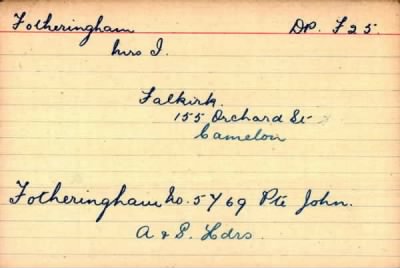 Fotheringham DP. F25.
Mrs I.
Falkirk.
155 Orchard St
Camelon
Fotheringham No. 5769 Pte John.
A & S. Hdrs.